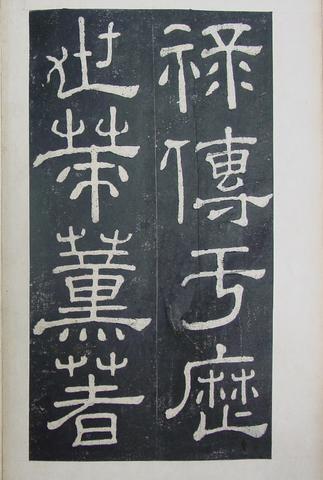 祿傳于歷
世策薰著